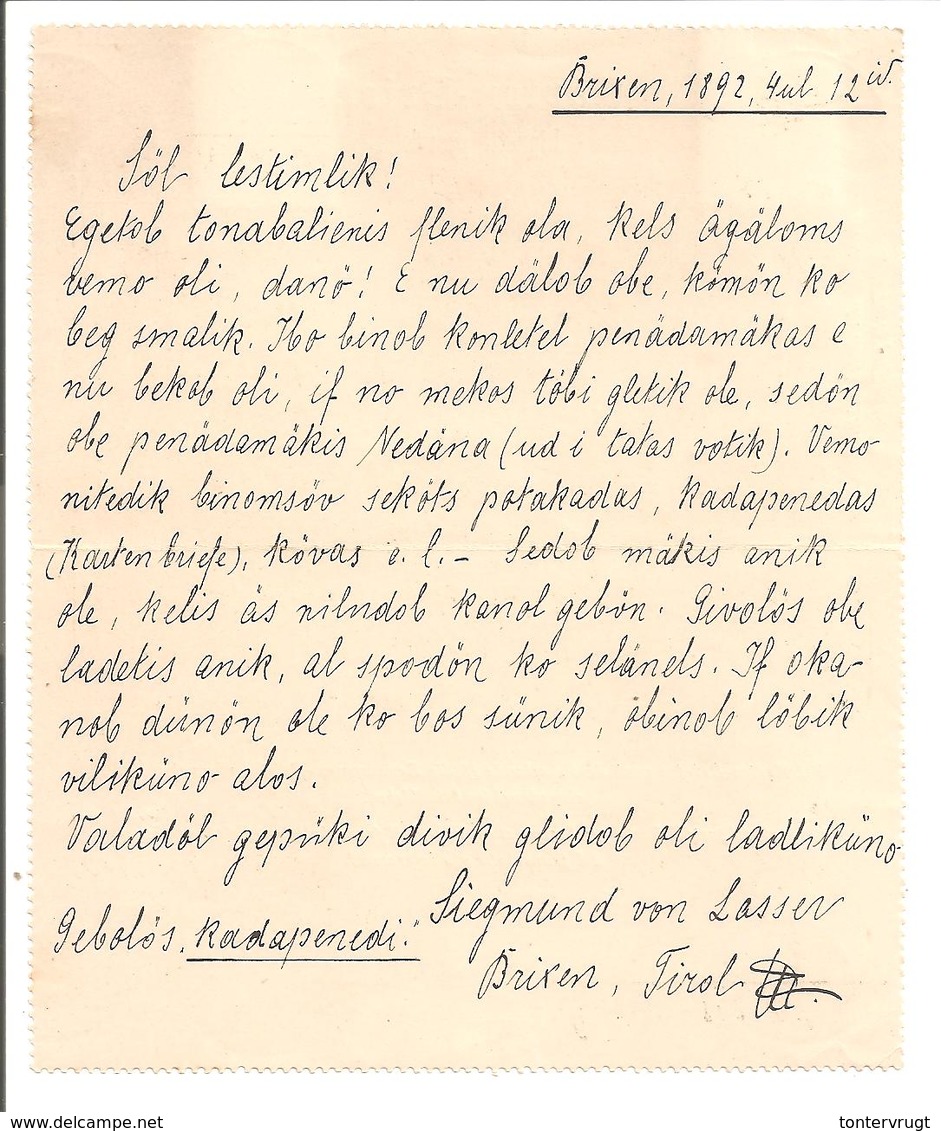 Brixen, 1892, Yul 12id.
Söl lestimlik!
Egetob tonabalienis flenik ola, kels ägäloms
vemo oli, danö! E nu dälob obe, kömön ko
beg smalik. Ibo binob konletel penädamäkas e
nu bekob oli, if no mekos töbi gletik ole, sedön
obe penädamäkis Nedäna (ud i tatas votik). Vemo
nitedik binomsöv seköts potakadas, kadapenedas
(Kartenbriefe), kövas e. l. – Sedob mäkis anik
ole, kelis äs niludob kanol gebön. Givolös obe
ladetis anik, al spodön ko selänels. If oka-
nob dünön ole ko bos sünik, obinob löbik
viliküno alos.
Valadöl gepüki divik glidob oli ladliküno
Siegmund von Lasser
Gebolös „kadapenedi.“
Brixen, Tirol
www.delcampe.net
tontervrugt